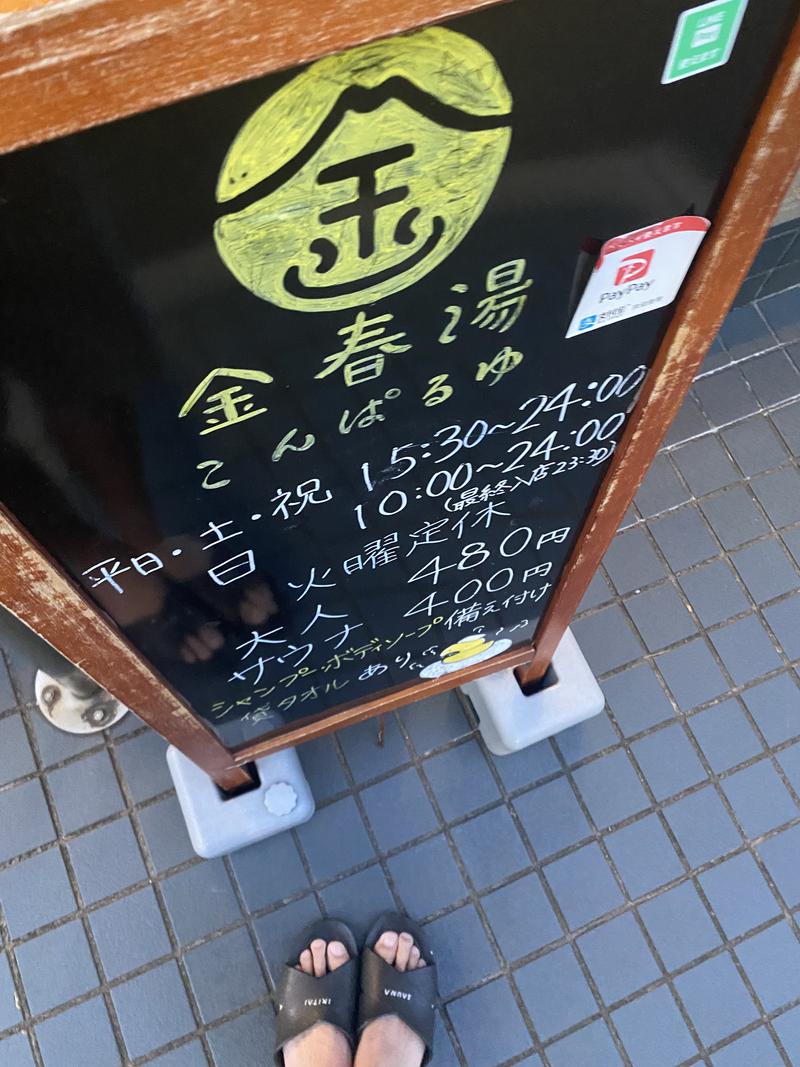 LINE
使えます
金
PayPay
金春湯
こんぱるゆ
平日・土・祝 15:30~24:00
日 10:00~24:00
(最終入店23:30)
火曜定休
大人 480円
サウナ 400円
シャンプー・ボディソープ備え付け
貸タオルあり
IKITAI
SAUNA